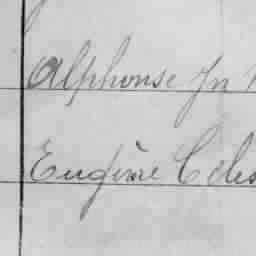 Alphonse Jn
Eugène Céles